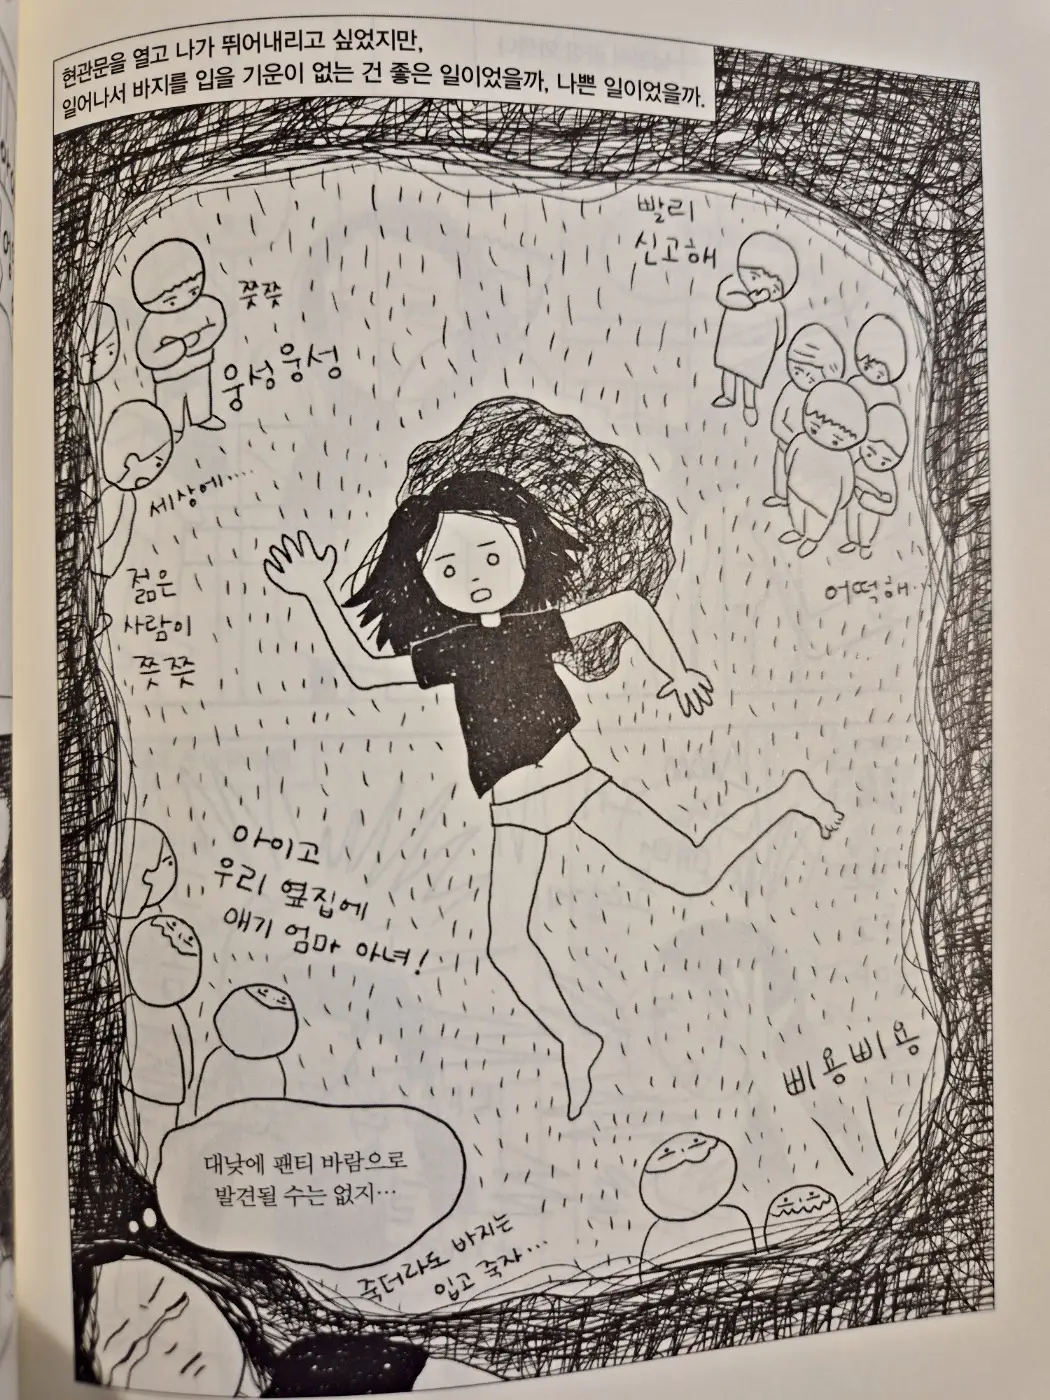 현관문을 열고 나가 뛰어내리고 싶었지만,
일어나서 바지를 입을 기운이 없는 건 좋은 일이었을까, 나쁜 일이었을까.
빨리
신고해
쯧쯧
웅성웅성
세상에…
어떡해…
젊은
사람이
쯧쯧
아이고
우리 옆집에
애기 엄마 아녀!
삐용삐용
대낮에 팬티 바람으로
발견될 수는 없지…
죽더라도 바지는
입고 죽자…